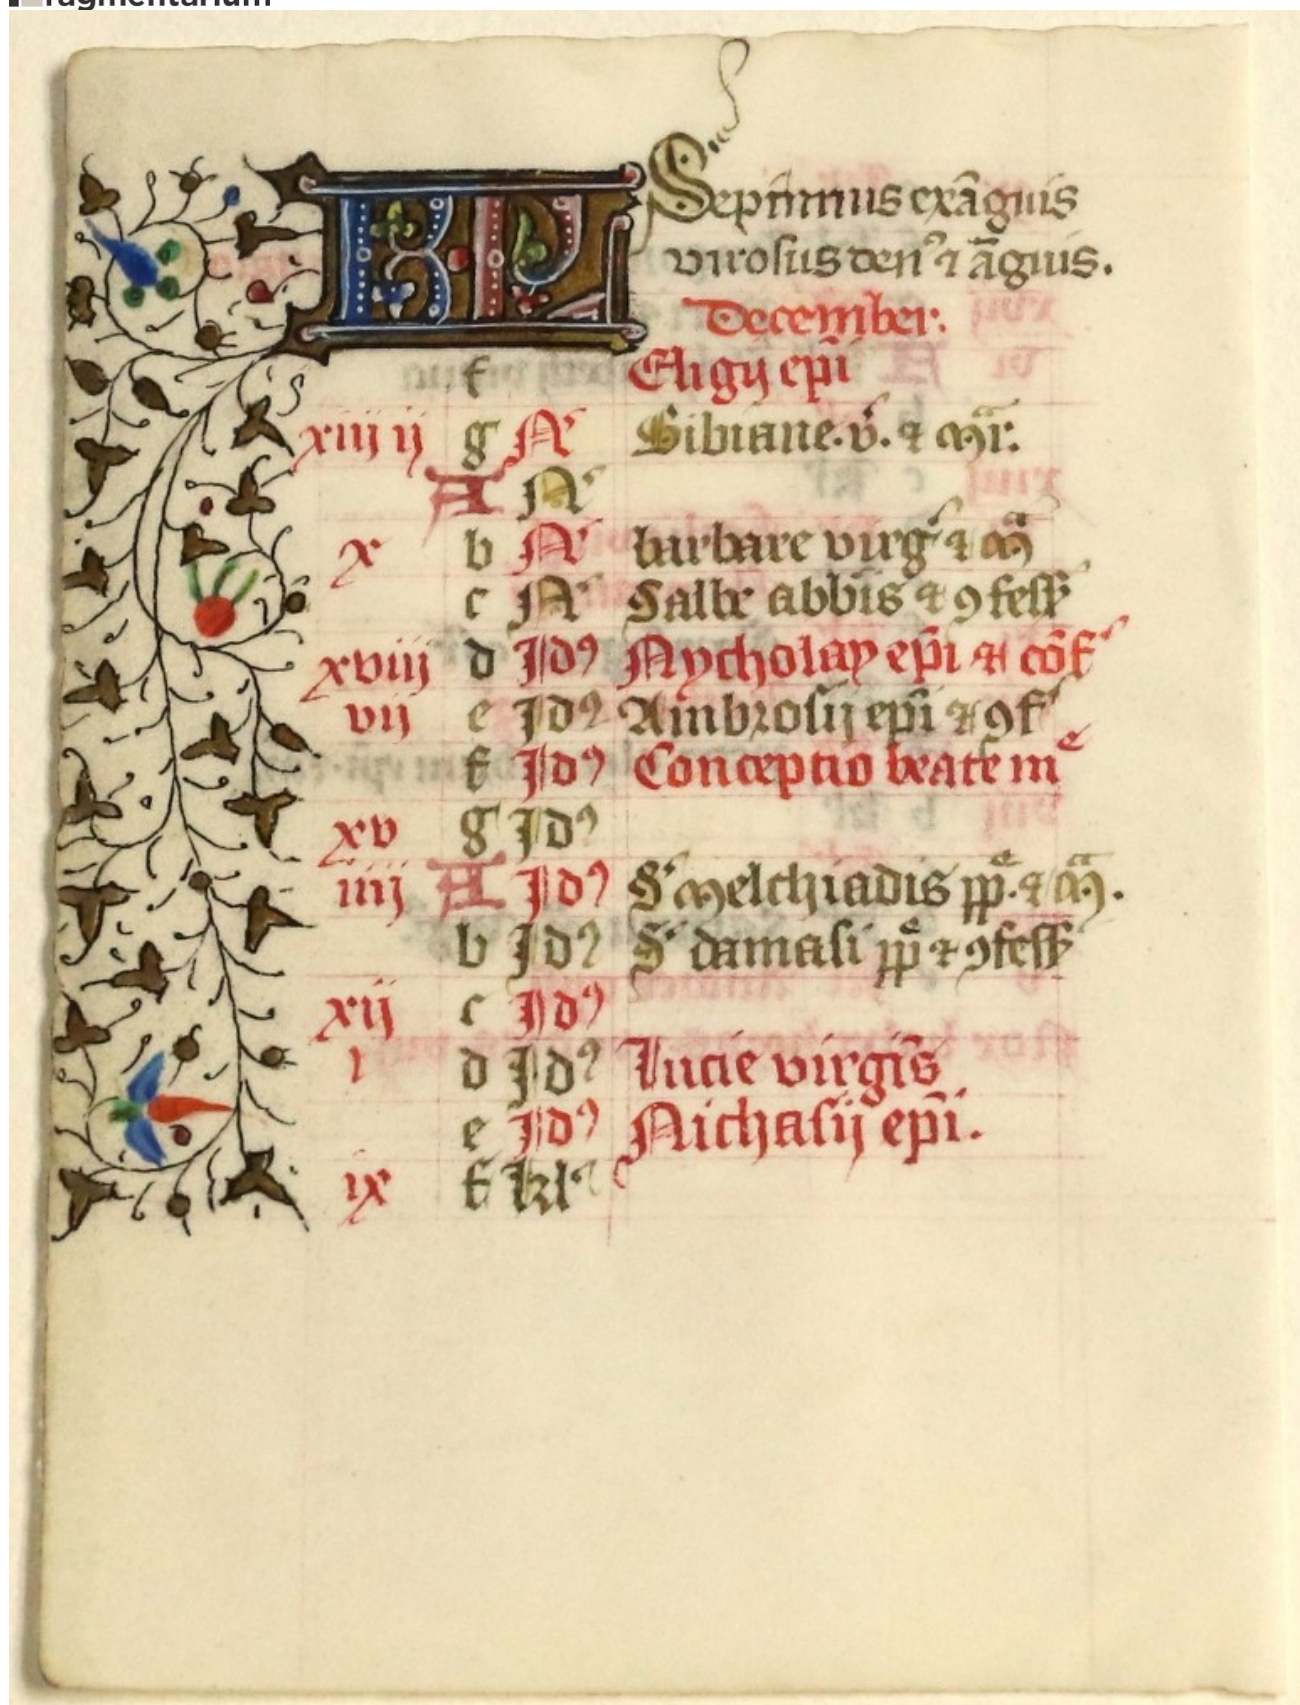 fragmentarium
KL Septimus exāguis
virosus den⁹ ⁊ āguis.
December.
f Eligij ep̄i
xiij ij g N͛ Bibiane. v̄. ⁊ m̄r.
A N͛
x b N͛ barbare virg͛ ⁊ m̄
c N͛ Salbe abb̄is ⁊ ꝯfess͛
xviij d Jd⁹ Nycholay ep̄i ⁊ cōf͛
vij e Jd⁹ Ambrosij ep̄i ⁊ ꝯf͛
f Jd⁹ Conceptio beate mᵉ
xv g Jd⁹
iiij A Jd⁹ S͛ melchiadis pp̄. ⁊ m̄.
b Jd⁹ S͛ damasi pp̄ ⁊ ꝯfess͛
xij c Jd⁹
i d Jd⁹ Lucie virgīs
e Jd⁹ Nichasij ep̄i.
ix f kl͛